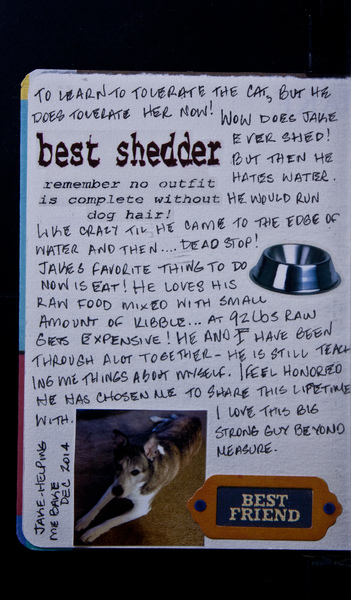 TO LEARN TO TOLERATE THE CAT, BUT HE
DOES TOLERATE HER NOW!
WOW DOES JAKE
EVER SHED!
BUT THEN HE
HATES WATER.
best shedder
remember no outfit
is complete without
dog hair!
HE WOULD RUN
LIKE CRAZY TIL HE CAME TO THE EDGE OF
WATER AND THEN.... DEAD STOP!
JAKES FAVORITE THING TO DO
NOW IS EAT! HE LOVES HIS
RAW FOOD MIXED WITH SMALL
AMOUNT OF KIBBLE... AT 92LBS RAW
GETS EXPENSIVE! HE AND I HAVE BEEN
THROUGH ALOT TOGETHER - HE IS STILL TEACH
ING ME THINGS ABOUT MYSELF. I FEEL HONORED
HE HAS CHOSEN ME TO SHARE THIS LIFETIME
WITH.
I LOVE THIS BIG
STRONG GUY BEYOND
MEASURE.
JAKE-HELPING
ME BAKE
DEC 2014
BEST
FRIEND